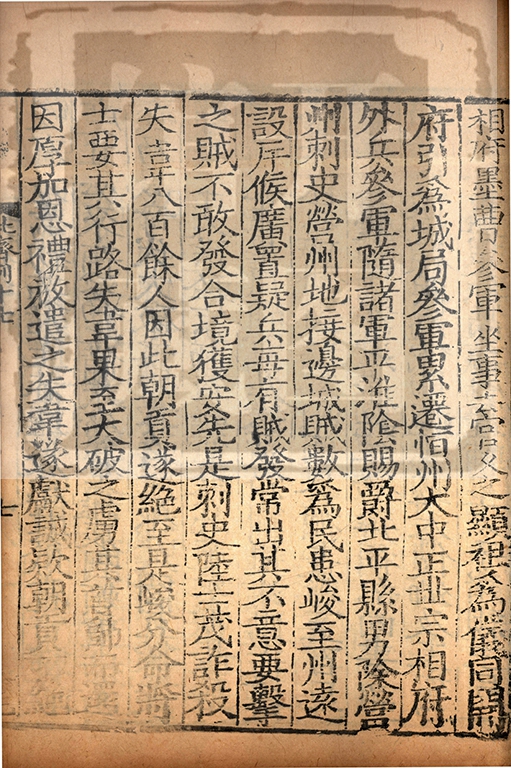 相府墨曹參軍坐事去官久之顯祖為儀同開
府引為城局參軍累遷恒州大中正世宗相府
外兵參軍隨諸軍平淮陰賜爵北平縣男除營
州刺史營州地接邊城賊數為民患峻至州遠
設斥候廣置疑兵每有賊發常出其不意要擊
之賊不敢發合境獲安先是刺史陸士茂詐殺
失韋八百餘人因此朝貢遂絕至是峻分命將
士要其行路失韋果至大破之虜其首帥而還
因厚加恩禮放遣之失韋遂獻誠欵朝貢絕
北齊列十七 七